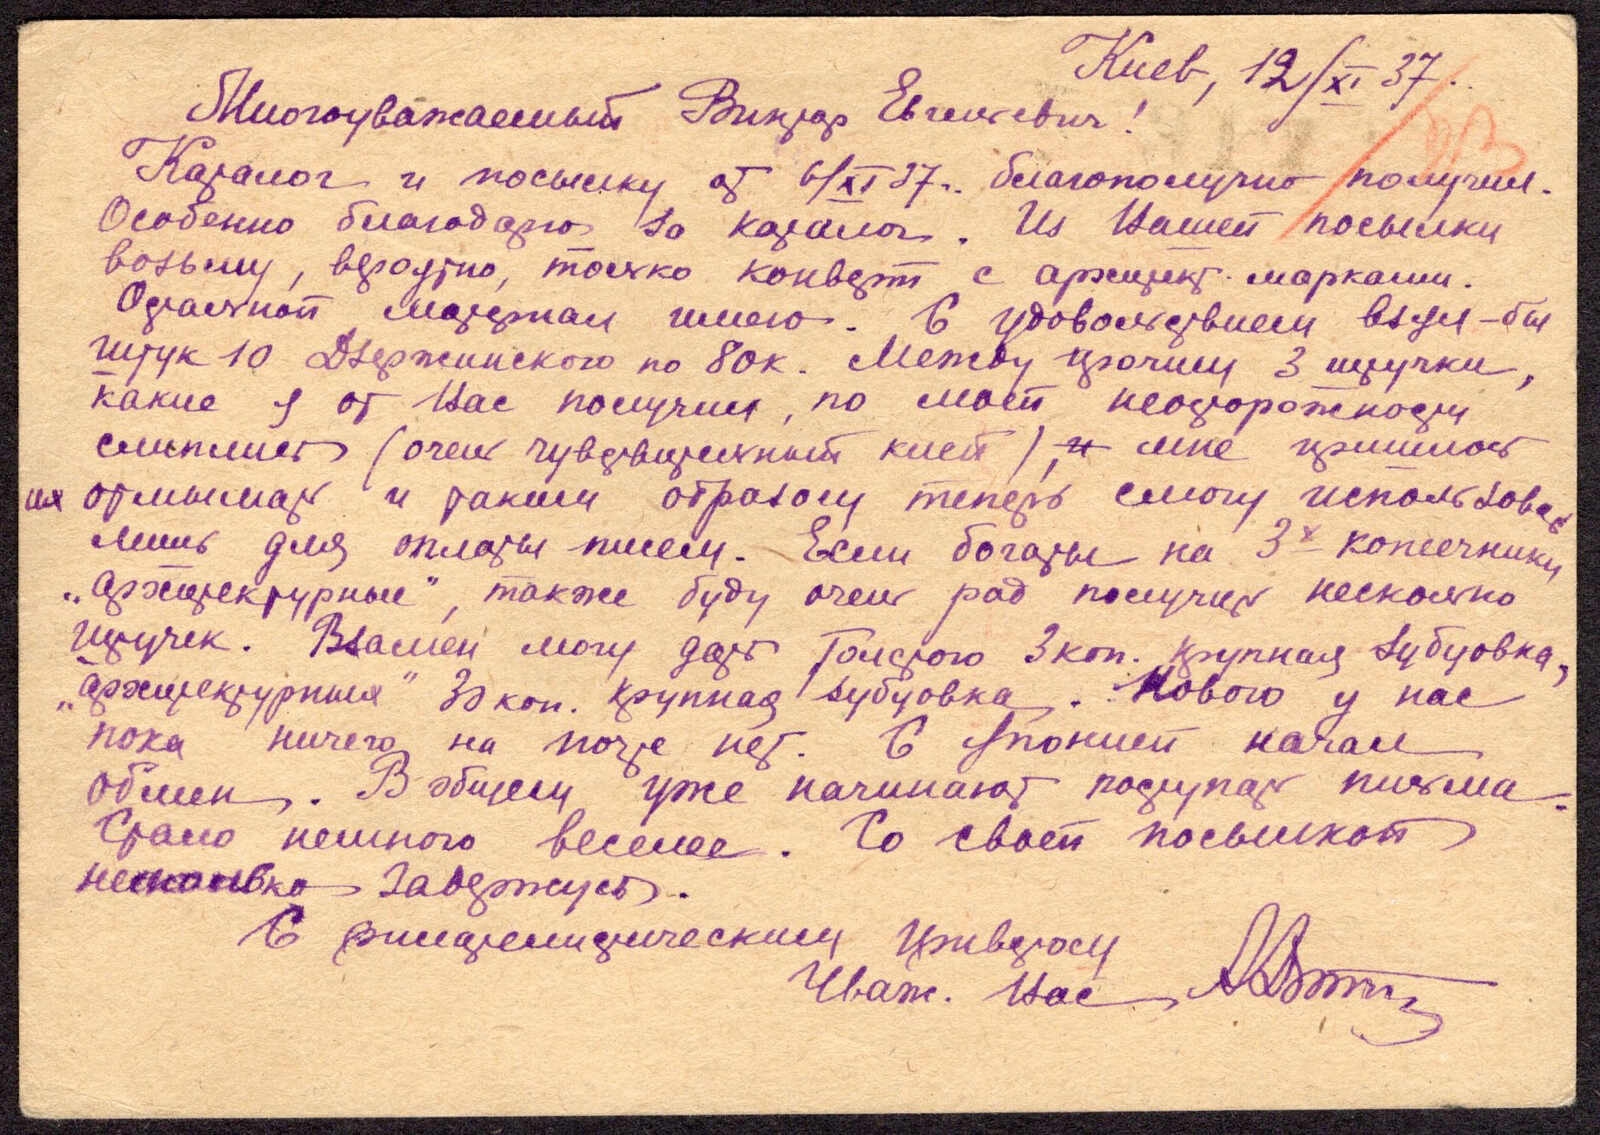 Киев, 12/XI 37.
Многоуважаемый Виктор Евгениевич!
Каталог и посылку от 6/XI 37 г. благополучно получил.
Особенно благодарю за каталог. Из Вашей посылки
возьму, вероятно, только конверт с архитект. марками.
Остальной материал имею. С удовольствием взял-бы
штук 10 Дзержинского по 80к. Между прочим 3 штучки,
какие я от Вас получил, по моей неосторожности
слиплись (очень чувствительный клей), и мне пришлось
их отмачивать и таким образом теперь смогу использовать
лишь для оплаты писем. Если богаты на 3х копеечники
„архитектурные", также буду очень рад получить несколько
штучек. Взамен могу дать Толстого 3 коп. крупная зубцовка,
„архитектурныя" 30 коп. крупная зубцовка. Нового у нас
пока ничего на почте нет. С Японией начал
обмен. В общем уже начинают поступать письма.
Стало немного веселее. Со своей посылкой
несколько задержусь.
С филателистическим приветом
Уваж. Вас